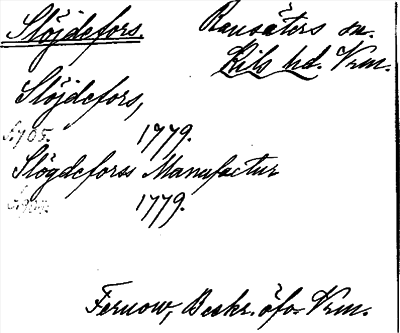 Slöjdefors. Ransäters sn.
Kils hd. Vrm.
Slöjdefors,
S. 705. 1779.
Slögdeforss Manufactur
1779.
Fernow, Beskr. öfv. Vrm.